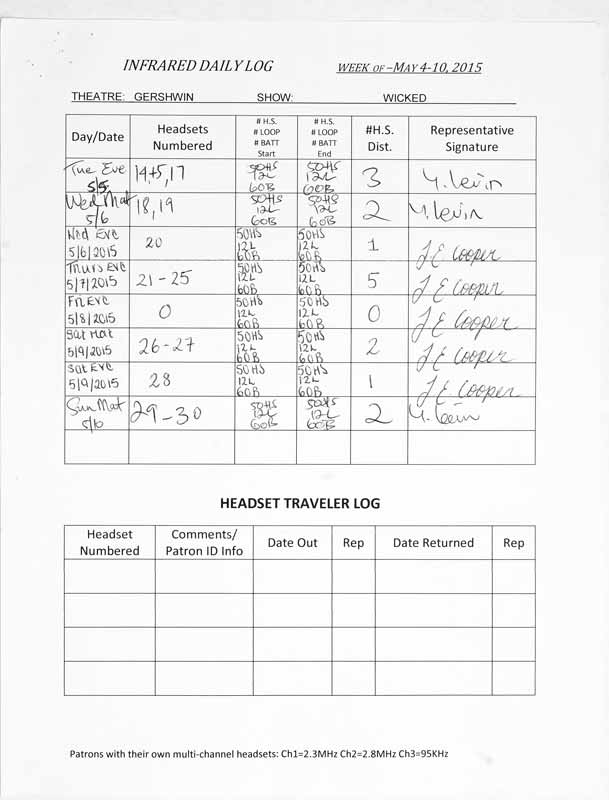 INFRARED DAILY LOG WEEK OF –MAY 4-10, 2015
THEATRE: GERSHWIN SHOW: WICKED
Day/Date
Headsets
Numbered
# H.S.
# LOOP
# BATT
Start
# H.S.
# LOOP
# BATT
End
#H.S.
Dist.
Representative
Signature
Tue Eve
5/5
14+5,17
50HS
12L
60B
50HS
12L
60B
3
Y. Levin
Wed Mat
5/6
18,19
50HS
12L
60B
50HS
12L
60B
2
Y. Levin
Wed Eve
5/6/2015
20
50HS
12L
60B
50HS
12L
60B
1
J E Cooper
Thurs Eve
5/7/2015
21-25
50HS
12L
60B
50HS
12L
60B
5
J E Cooper
Fri Eve
5/8/2015
0
50HS
12L
60B
50HS
12L
60B
0
J E Cooper
Sat Mat
5/9/2015
26-27
50HS
12L
60B
50HS
12L
60B
2
J E Cooper
Sat Eve
5/9/2015
28
50HS
12L
60B
50HS
12L
60B
1
J E. Cooper
Sun Mat
5/10
29-30
50HS
12L
60B
50HS
12L
60B
2
Y. Levin
HEADSET TRAVELER LOG
Headset
Numbered
Comments/
Patron ID Info
Date Out
Rep
Date Returned
Rep
Patrons with their own multi-channel headsets: Ch1=2.3MHz Ch2=2.8MHz Ch3=95KHz